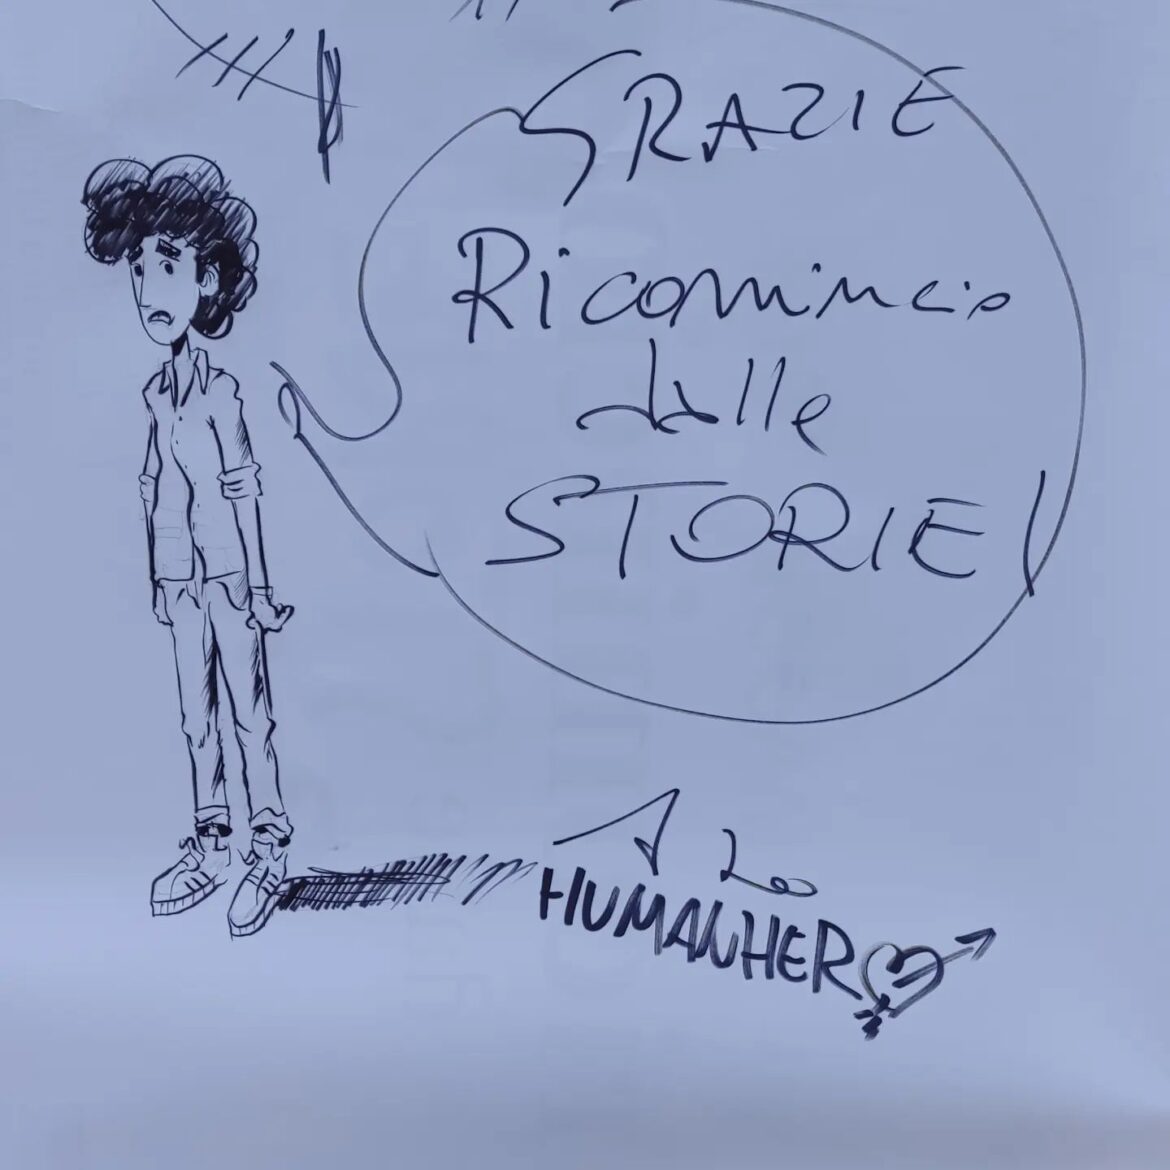 GRAZIE
Ricomincio
dalle
STORIE!
HUMANHERO